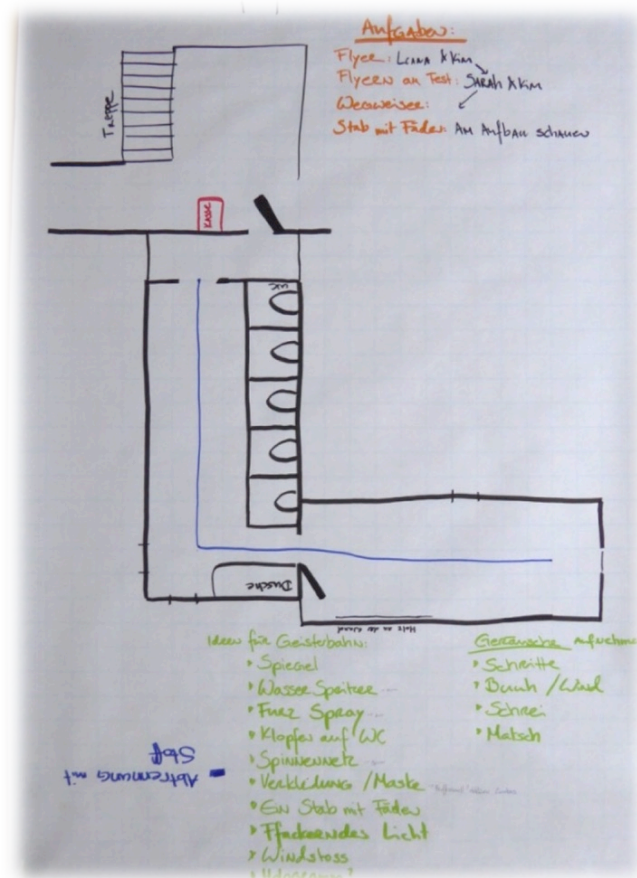 Aufgaben:
Flyer: Lenna & Kim
Flyern an Test: Sarah & Kim
Wegweiser:
Stab mit Fäden: Am Aufbau schauen
Treppe
Kasse
WC
Dusche
Holz an der Wand
Ideen für Geisterbahn:
• Spiegel
• Wasser Spritzer
• Furz Spray
• Klopfer auf WC
• Spinnennetz
• Verkleidung / Maske
• Ein Stab mit Fäden
• Flackerndes Licht
• Windstoss
Geräusche aufnehmen
• Schritte
• / Wind
• Schrei
• Matsch
Abtrennung mit
Stoff